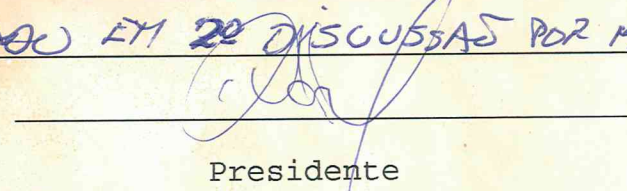 EM 2ª DISCUSSÃO POR
Presidente